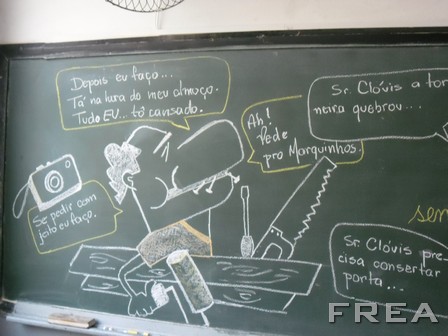 Depois eu faço...
Tá na hora do meu almoço.
Tudo EU... tô cansado.
Ah!
Pede
pro Marquinhos.
Sr. Clóvis a tor
neira quebrou...
Se pedir com
jeito eu faço.
sem
Sr. Clóvis pre-
cisa consertar
porta...
FREA